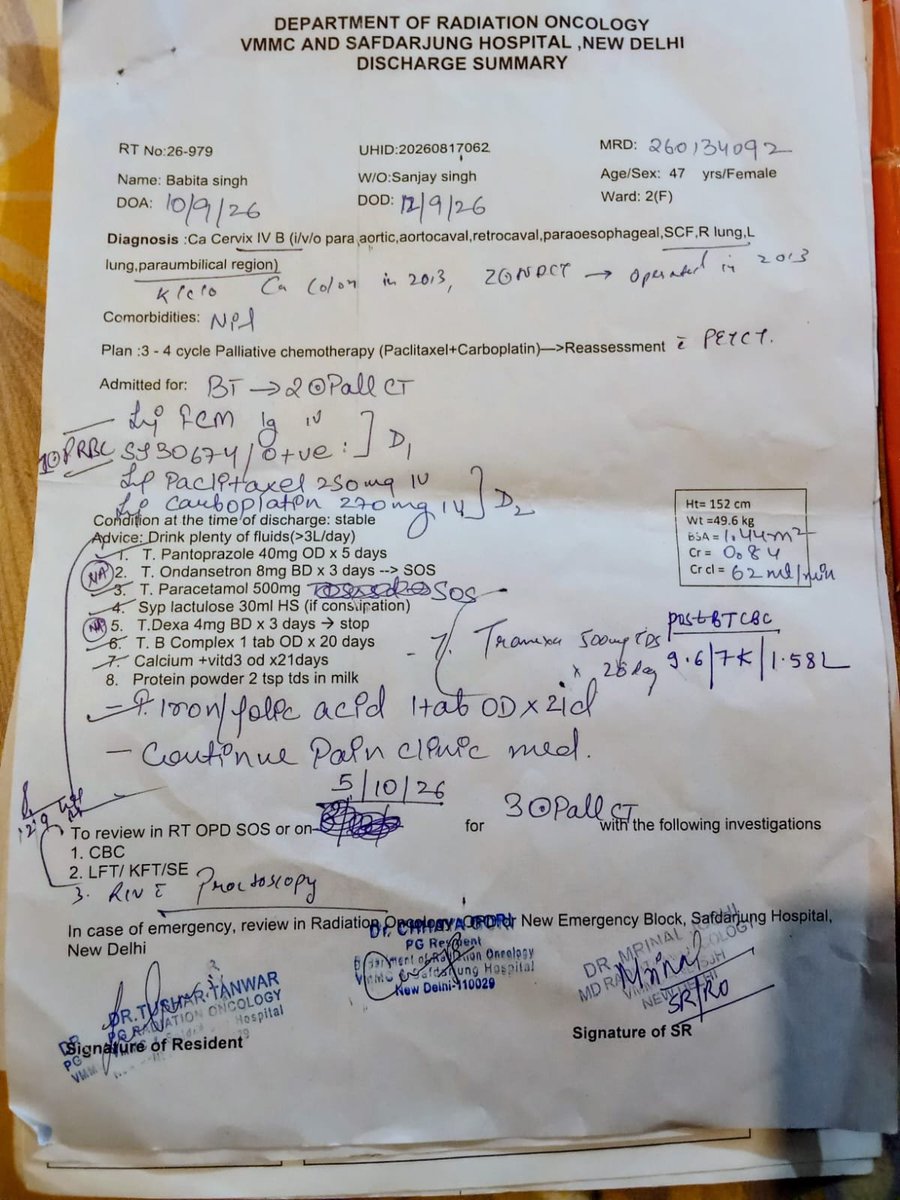 DEPARTMENT OF RADIATION ONCOLOGY
VMMC AND SAFDARJUNG HOSPITAL ,NEW DELHI
DISCHARGE SUMMARY
RT No:26-979 UHID:20260817062 MRD: 260134092
Name: Babita singh W/O:Sanjay singh Age/Sex: 47 yrs/Female
DOA: 10/9/26 DOD: 12/9/26 Ward: 2(F)
Diagnosis :Ca Cervix IV B (i/v/o para aortic,aortocaval,retrocaval,paraoesophageal,SCF,R lung,L
lung,paraumbilical region)
K/c/o Ca Colon in 2013, → operated in 2013
Comorbidities: Nil
Plan :3 - 4 cycle Palliative chemotherapy (Paclitaxel+Carboplatin)—>Reassessment c̄ PETCT.
Admitted for: BT → 2⊙Pall CT
Inj FCM 1g IV
1⊙PRBC 30674/O+ve D1
Inj Paclitaxel 250mg IV
Inj Carboplatin 270mg IV D2
Ht= 152 cm
Wt =49.6 kg
BSA = 1.44m2
Cr = 0.84
Cr cl = 62 ml/min
Condition at the time of discharge: stable
Advice: Drink plenty of fluids(>3L/day)
1. T. Pantoprazole 40mg OD x 5 days
NA 2. T. Ondansetron 8mg BD x 3 days --> SOS
3. T. Paracetamol 500mg SOS
4. Syp lactulose 30ml HS (if constipation)
NA 5. T.Dexa 4mg BD x 3 days → stop
6. T. B Complex 1 tab OD x 20 days
7. Calcium +vitd3 od x21days
8. Protein powder 2 tsp tds in milk
- T. Tranexa 500mg TDS
post BT CBC
9.6/7K/1.58L
- T. Iron/folic acid 1tab OD x 21d
- Continue Pain clinic med.
5/10/26
To review in RT OPD SOS or on for 3⊙Pall CT with the following investigations
1. CBC
2. LFT/ KFT/SE
3. Proctoscopy
In case of emergency, review in Radiation Oncology OPD or New Emergency Block, Safdarjung Hospital,
New Delhi
DR.TUSHAR TANWAR
PG RADIATION ONCOLOGY
Signature of Resident
PG Resident
Department of Radiation Oncology
VMMC & Safdarjung Hospital
New Delhi-110029
DR. MRINAL
Mrinal
SR/RO
NEW DELHI
Signature of SR